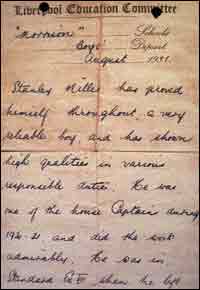 Liverpool Education Committee
"Morrison" Schools
Boys' Depart
August 1921.
Stanley Miller has proved
himself throughout, a very
reliable boy, and has shown
high qualities in various
responsible duties. He was
one of the house Captains during
1920-21, and did the work
admirably. He was in
Standard when he left